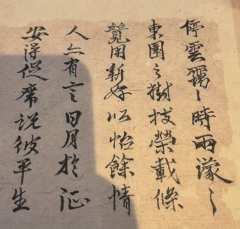 停雲靄〻時雨濛〻
東園之樹枝榮載條
競用新好以怡餘情
人亦有言日月於征
安得促席說彼平生